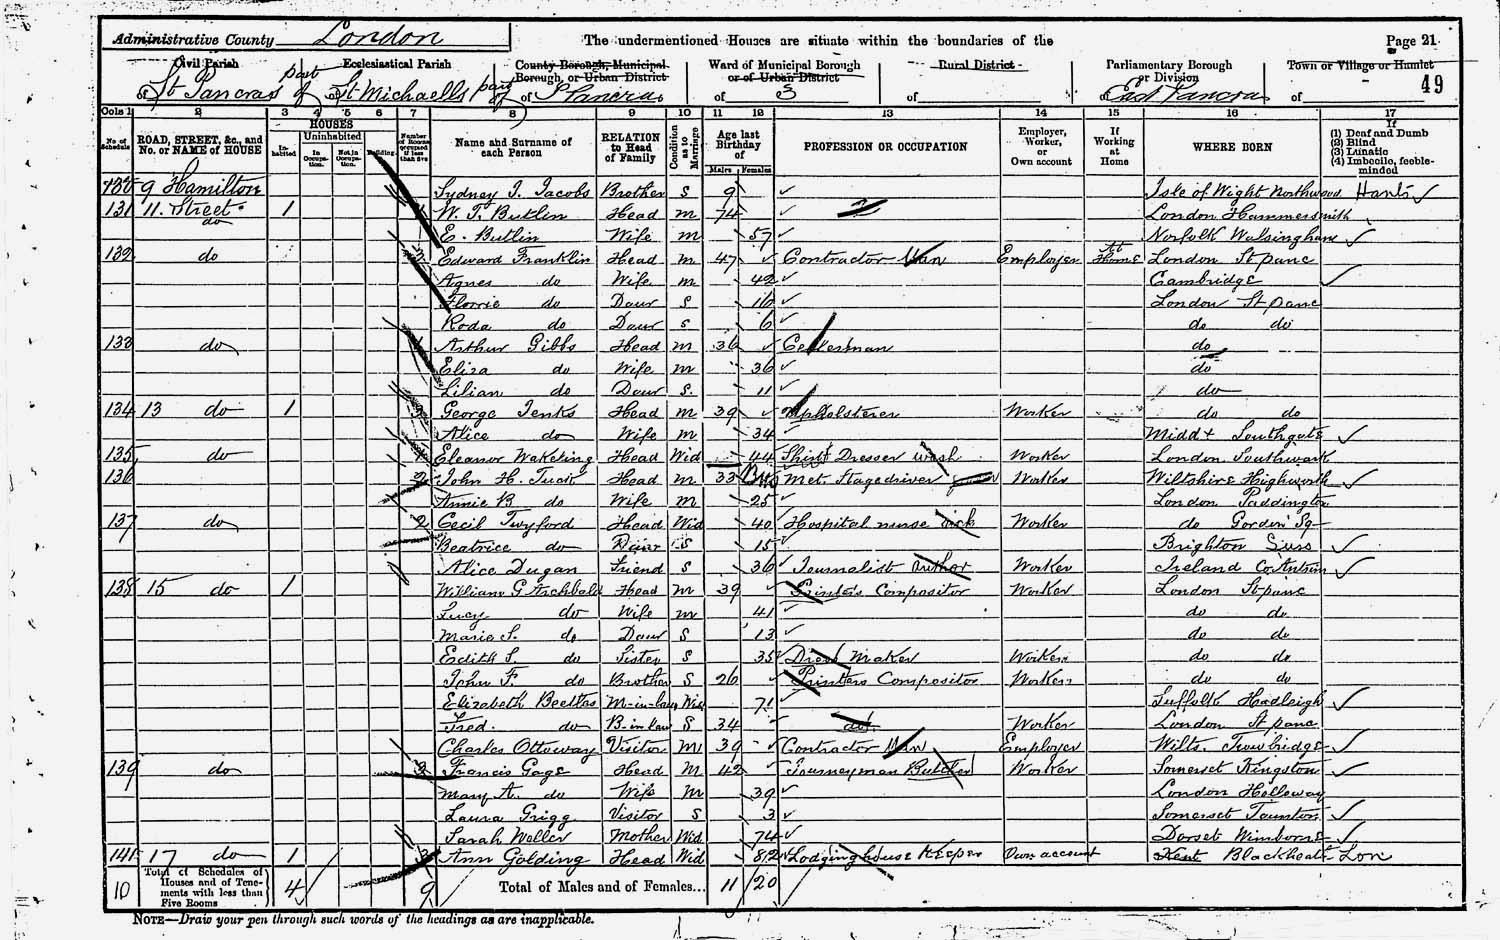 Administrative County London
The undermentioned Houses are situate within the boundaries of the
Page 21
Civil Parish
Ecclesiastical Parish
County Borough, Municipal Borough, or Urban District
Ward of Municipal Borough or of Urban District
Rural District
Parliamentary Borough or Division
Town or Village or Hamlet
of St Pancras part of
of St Michaells part of
of St Pancras
of 3
of
of East Pancras
of
49
Cols 1 2 3 4 5 6 7 8 9 10 11 12 13 14 15 16 17
No of Schedule
ROAD, STREET, &c., and No. or NAME of HOUSE
HOUSES
Inhabited
Uninhabited
In Occupation.
Not in Occupation.
Building.
Number of Rooms occupied if less than five
Name and Surname of each Person
RELATION to Head of Family
Condition as to Marriage
Age last Birthday of
Males Females
PROFESSION or OCCUPATION
Employer, Worker, or Own account
If Working at Home
WHERE BORN
If
(1) Deaf and Dumb
(2) Blind
(3) Lunatic
(4) Imbecile, feeble-minded
130 9 Hamilton Sydney J. Jacobs Brother S 9 Isle of Wight Northwood Hants
131 11. Street 1 W. J. Butlin Head m 74 London Hammersmith
do E. Butlin Wife m 57 Norfolk Walsingham
132 do 3 Edward Franklin Head m 47 Contractor Employer At Home London St panc
Agnes do Wife m 42 Cambridge
Florrie do Daur S 16 London St panc
Roda do Daur s 6 do do
133 do Arthur Gibbs Head m 36 Cellerman do
Eliza do Wife m 36 do
Lilian do Daur S. 11 do
134 13 do 1 2 George Jenks Head m 39 Upholsterer Worker do do
Alice do Wife m 34 Middx Southgate
135 do 1 Eleanor Wakeling Head Wid 44 Shirt Dresser wash Worker London Southwark
136 2 John H. Tuck Head m 33 Bus Met Stagedriver Worker Wiltshire Highworth
Annie B do Wife m 25 London Paddington
137 do 2 Cecil Twyford Head Wid 40 Hospital nurse sick Worker do Gordon Sq
Beatrice do Daur S 15 Brighton Suss
Alice Dugan Friend S 36 Journalist Author Worker Ireland Co Antrim
138 15 do 1 William G Archbald Head m 39 Printers Compositor Worker London St panc
Lucy do Wife m 41 do do
Marie S. do Daur S 13 do do
Edith S. do Sister S 35 Dress Maker Worker do do
John F. do Brother S 26 Printers Compositor Worker do do
Elizabeth Beetles M-in-law Wid 71 Suffolk Hadleigh
Fred. do B. in law S 34 do Worker London St panc
Charles Ottoway Visitor M 39 Contractor Employer Wilts. Trowbridge
139 do 3 Francis Gage Head M 42 Journeyman Butcher Worker Somerset Kingston
Mary A. do Wife M 39 London Holloway
Laura Grigg Visitor S 3 Somerset Taunton
Sarah Weller Mother Wid 74 Dorset Wimborne
141 17 do 1 3 Ann Golding Head Wid 82 Lodging house Keeper Own account Kent Blackheath Lon
10 Total of Schedules of Houses and of Tenements with less than Five Rooms 4 9 Total of Males and of Females... 11 20
NOTE—Draw your pen through such words of the headings as are inapplicable.